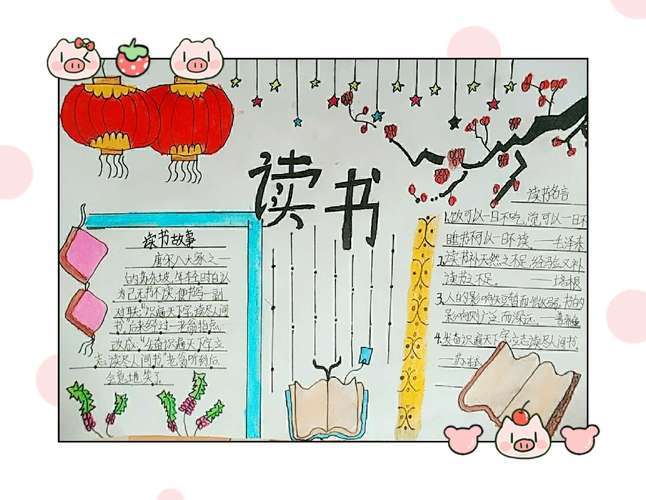 读书
读书故事
唐宋八大家之一
的苏东坡,年轻时自认
为已没书不读,便书写一副
对联“识遍天下字,读尽人间
书”后来经过一老翁指点,
改成:“发奋识遍天下字,立
志读尽人间书”老翁听到后,
会意地笑了。
读书名言
1.饭可以一日不吃,觉可以一日不
睡,书不可以一日不读。——毛泽东
2.读书补天然之不足,经验又补
读书之不足。——培根
3.人的影响短暂而微弱,书的
影响则广泛而深远。——普希金
4.发奋识遍天下字,立志读尽人间书。
——苏轼